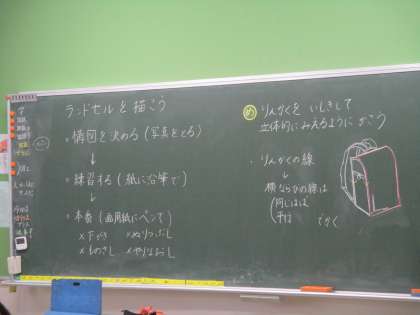 ランドセルを描こう
・構図を決める(写真をとる)
↓
・練習する(紙に鉛筆で)
↓
・本番(画用紙にペンで)
×下がき ×ぬりつぶし
×ものさし ×やりなおし
め りんかくをいしきして
立体的にみえるようにかこう
・りんかくの線
↓
横ならびの線は
平行
でかく